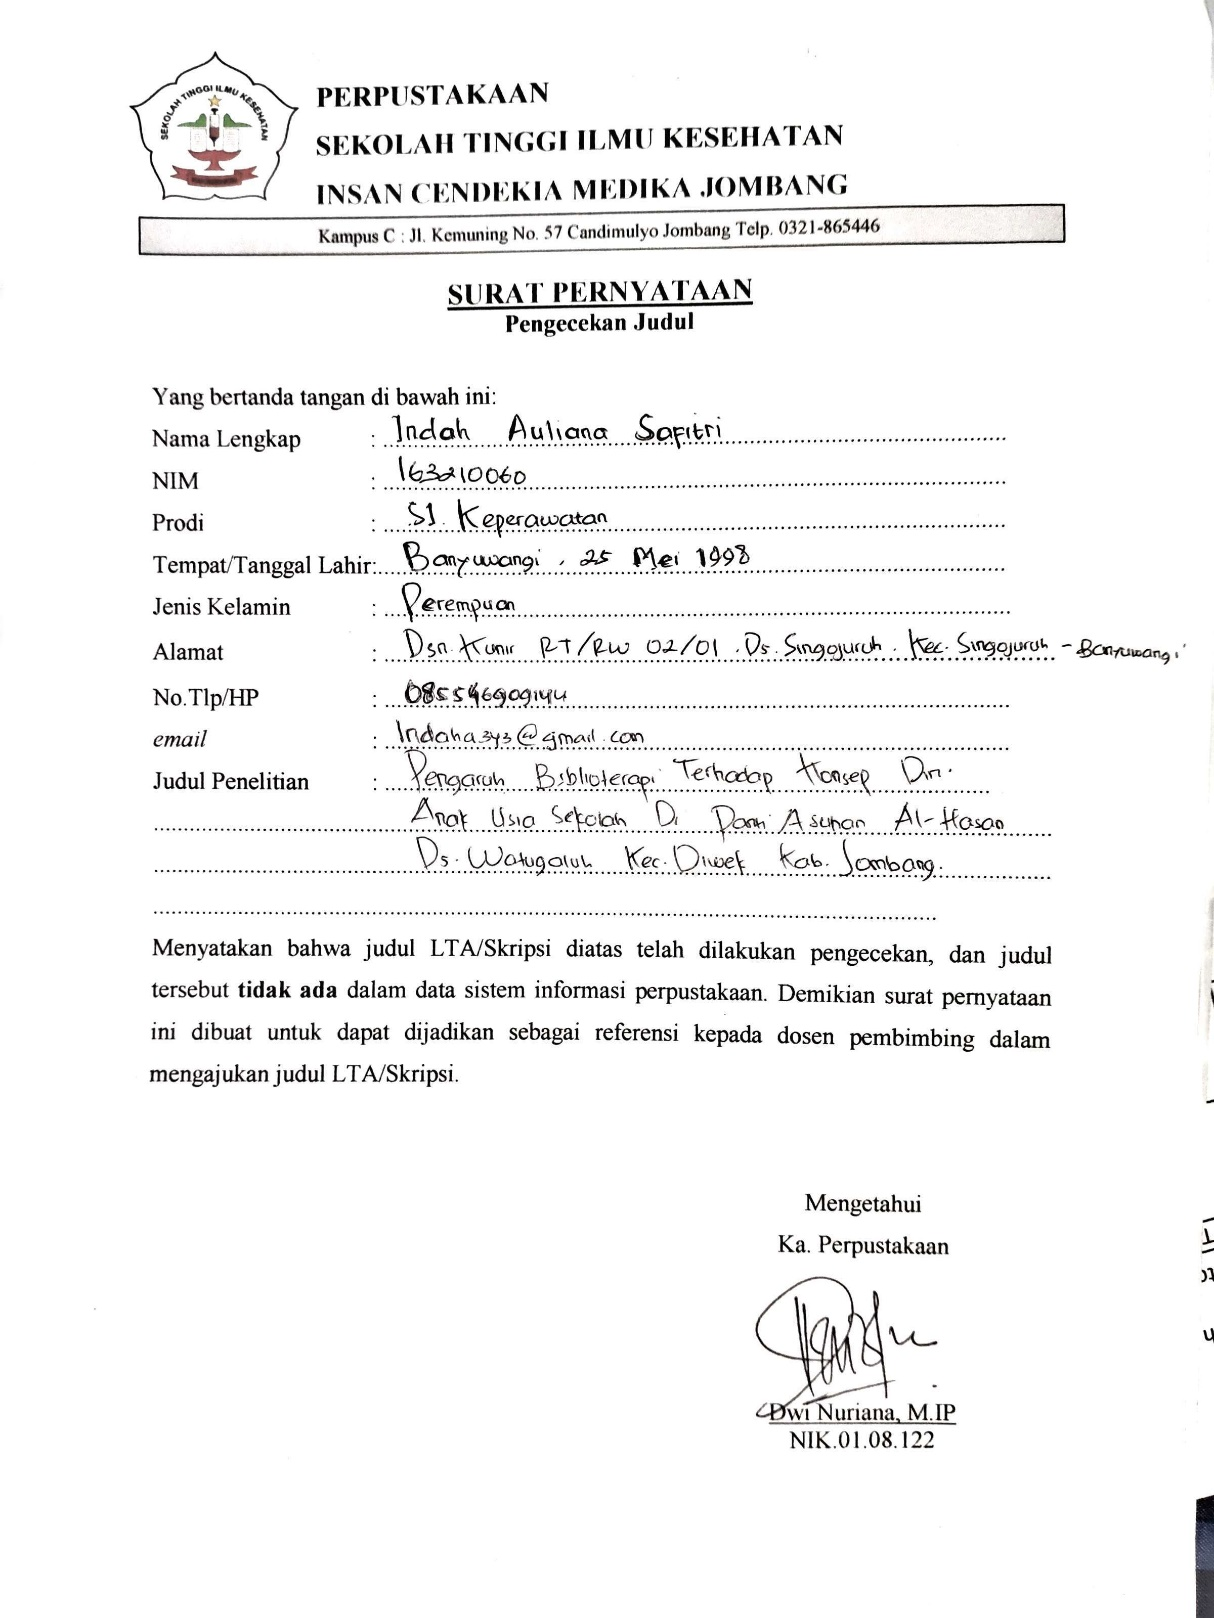 SEKOLAH TINGGI ILMU KESEHATAN
PERPUSTAKAAN
SEKOLAH TINGGI ILMU KESEHATAN
INSAN CENDEKIA MEDIKA JOMBANG
Kampus C : Jl. Kemuning No. 57 Candimulyo Jombang Telp. 0321-865446
SURAT PERNYATAAN
Pengecekan Judul
Yang bertanda tangan di bawah ini:
Nama Lengkap : Indah Auliana Safitri
NIM : 163210060
Prodi : S1 Keperawatan
Tempat/Tanggal Lahir: Banyuwangi, 25 Mei 1998
Jenis Kelamin : Perempuan
Alamat : Dsn. Kunir RT/RW 02/01. Ds. Singojuruh. Kec. Singojuruh - Banyuwangi
No.Tlp/HP : 085546909144
email : Indaha343@gmail.com
Judul Penelitian : Pengaruh Biblioterapi Terhadap Konsep Diri
Anak Usia Sekolah Di Panti Asuhan Al-Hasan
Ds. Watugaluh Kec. Diwek Kab. Jombang.
Menyatakan bahwa judul LTA/Skripsi diatas telah dilakukan pengecekan, dan judul
tersebut tidak ada dalam data sistem informasi perpustakaan. Demikian surat pernyataan
ini dibuat untuk dapat dijadikan sebagai referensi kepada dosen pembimbing dalam
mengajukan judul LTA/Skripsi.
Mengetahui
Ka. Perpustakaan
Dwi Nuriana, M.IP
NIK.01.08.122